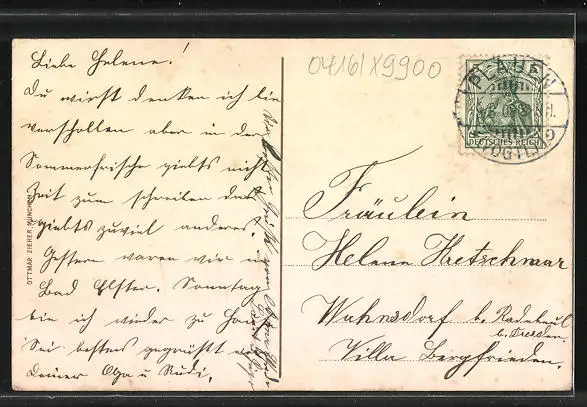 Liebe Helene!
Du wirst denken ich bin
verschollen aber in der
Sommerfrische giebts nicht
Zeit zum schreiben das
giebts zuviel anderes.
Gestern waren wir in
Bad Elster. Sonntag
bin ich wieder zu Haus
Sei bestens gegrüsst von
Deiner Olga u Rudi.
OTTMAR ZIEHER, MÜNCHEN
04161X9900
PLAUEN
VOGTL.
DEUTSCHES REICH
Fräulein
Helene Kretschmar
Wahnsdorf b. Radebeul
b. Dresden.
Villa Bergfrieden.